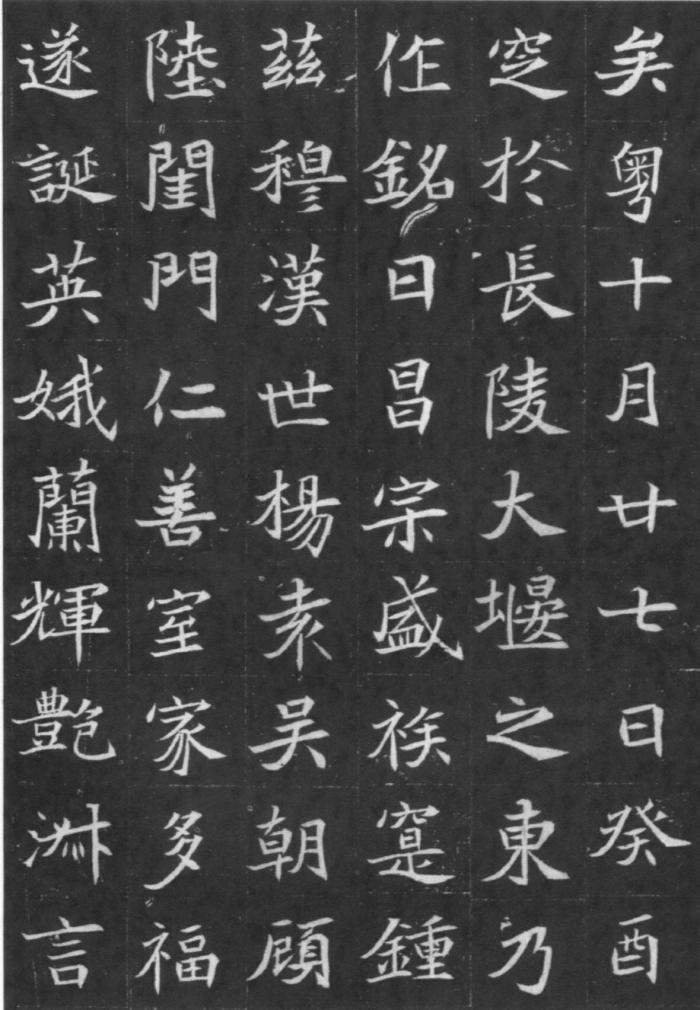 矣粤十月廿七日癸酉
窆於長陵大堰之東乃
作銘曰昌宗盛族寔鍾
茲穆漢世楊袁吴朝顧
陸閨門仁善室家多福
遂誕英娥蘭輝艶淋言